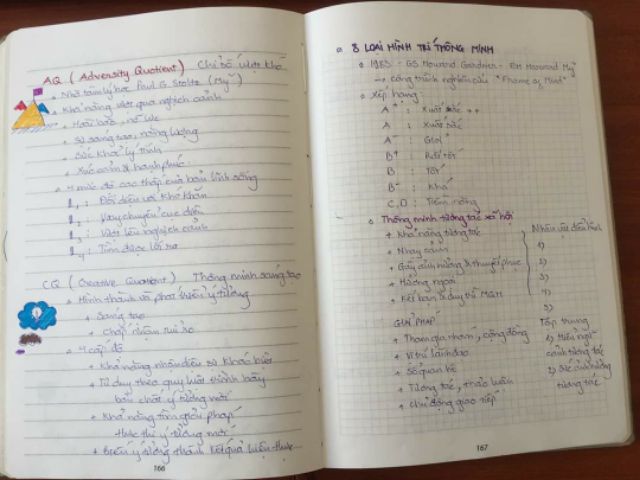 AQ (Adversity Quotient) Chỉ số vượt khó
• Nhà tâm lý học Paul G. Stoltz (Mỹ)
• Khả năng vượt qua nghịch cảnh
+ Hoài bão, nỗ lực
+ Sự sáng tạo, năng lượng
+ Sức khoẻ lý tính
+ Xúc cảm & hạnh phúc
• 4 mức độ cao thấp của bản lĩnh sống
1: Đối diện với khó khăn
2: Xoay chuyển cục diện
3: Vượt lên nghịch cảnh
4: Tìm được lối ra
CQ (Creative Quotient) Thông minh sáng tạo
• Hình thành và phát triển ý tưởng
+ Sáng tạo
+ Chấp nhận rủi ro
• 4 cấp độ
+ Khả năng nhận diện sự khác biệt
+ Tư duy theo quy luật trình bày
bản chất ý tưởng mới
+ Khả năng tìm giải pháp
thực thi ý tưởng mới
+ Biến ý tưởng thành kết quả hiện thực
166
8 LOẠI HÌNH TRÍ THÔNG MINH
• 1983 - GS Howard Gardner - ĐH Harvard Mỹ
→ công trình nghiên cứu "Frame of Mind"
• Xếp hạng:
A+ : Xuất sắc ++
A : Xuất sắc
A- : Giỏi
B+ : Rất tốt
B : Tốt
B- : Khá
C, D : Tiềm năng
• Thông minh tương tác xã hội
+ Khả năng tương tác
+ Nhạy cảm
+ Gây ảnh hưởng & thuyết phục
+ Hướng ngoại
+ Kết bạn & duy trì MQH
Nhân vật điển hình
1)
2)
3)
4)
5)
GIẢI PHÁP
+ Tham gia nhóm, cộng đồng
+ Vị trí lãnh đạo
+ Số quan hệ
+ Tương tác, thảo luận
+ Chủ động giao tiếp
Tập trung
1) Hiểu ngữ
cảnh tương tác
2) Sức ảnh hưởng
tương tác
167